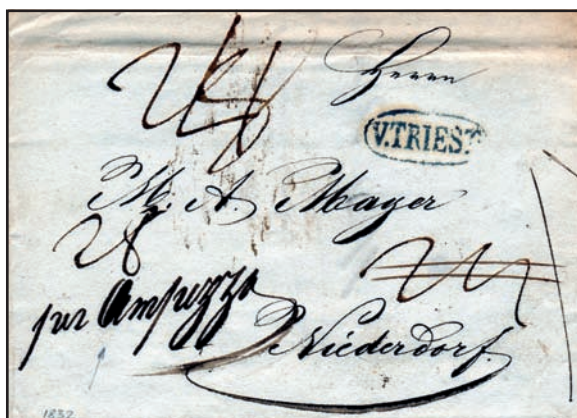 Herrn
V. TRIEST
M. A. Mayer
28
per Ampezzo
Niederdorf.
1832